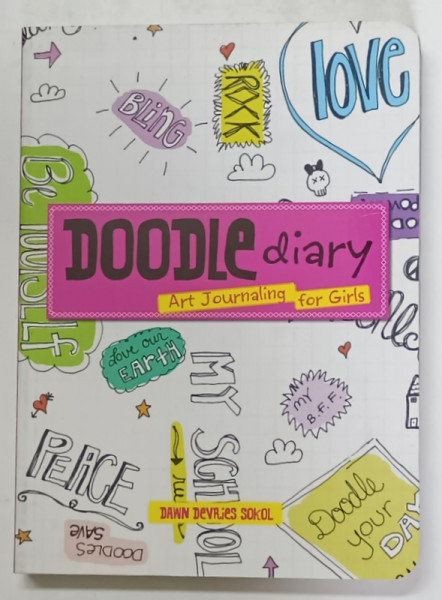 love
ROCK
BLING
Be YOURSELF
DOODLe diary
Art Journaling for Girls
Love our
EARTH
MY SCHOOL
MY
B.F.F.
PEACE
RULES
DAWN DEVRIES SOKOL
Doodle
your
DAY
DOODLES
SAVE